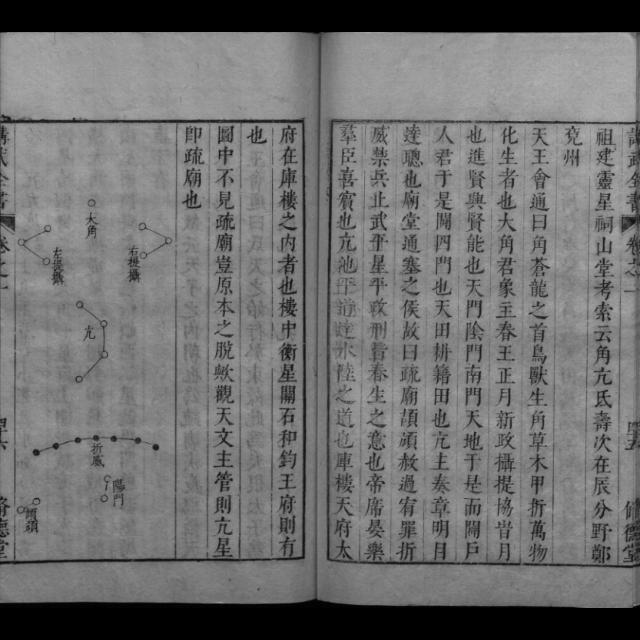 祖建靈星祠山堂考索云角亢氐壽次在辰分野鄭
兗州
天王會通曰角蒼龍之首鳥獸生角草木甲折萬物
化生者也大角君象王春王正月新政攝提協旹月
也進賢興賢能也天門陰門南門天地于是而闢戶
人君于是闢四門也天田耕籍田也亢主奏章明目
達聰也廟堂通塞之候故曰疏廟頏頑赦過宥罪折
威樂兵止武平星平政刑旹春生之意也帝席晏樂
羣臣喜賓也亢池平道達水陸之道也庫樓天府太
府在庫樓之內者也樓中衡星關石和鈞王府則有
也
圖中不見疏廟豈原本之脫歟觀天文主管則亢星
即疏廟也
大角
右攝提
左攝提
亢
折威
陽門
頓頑